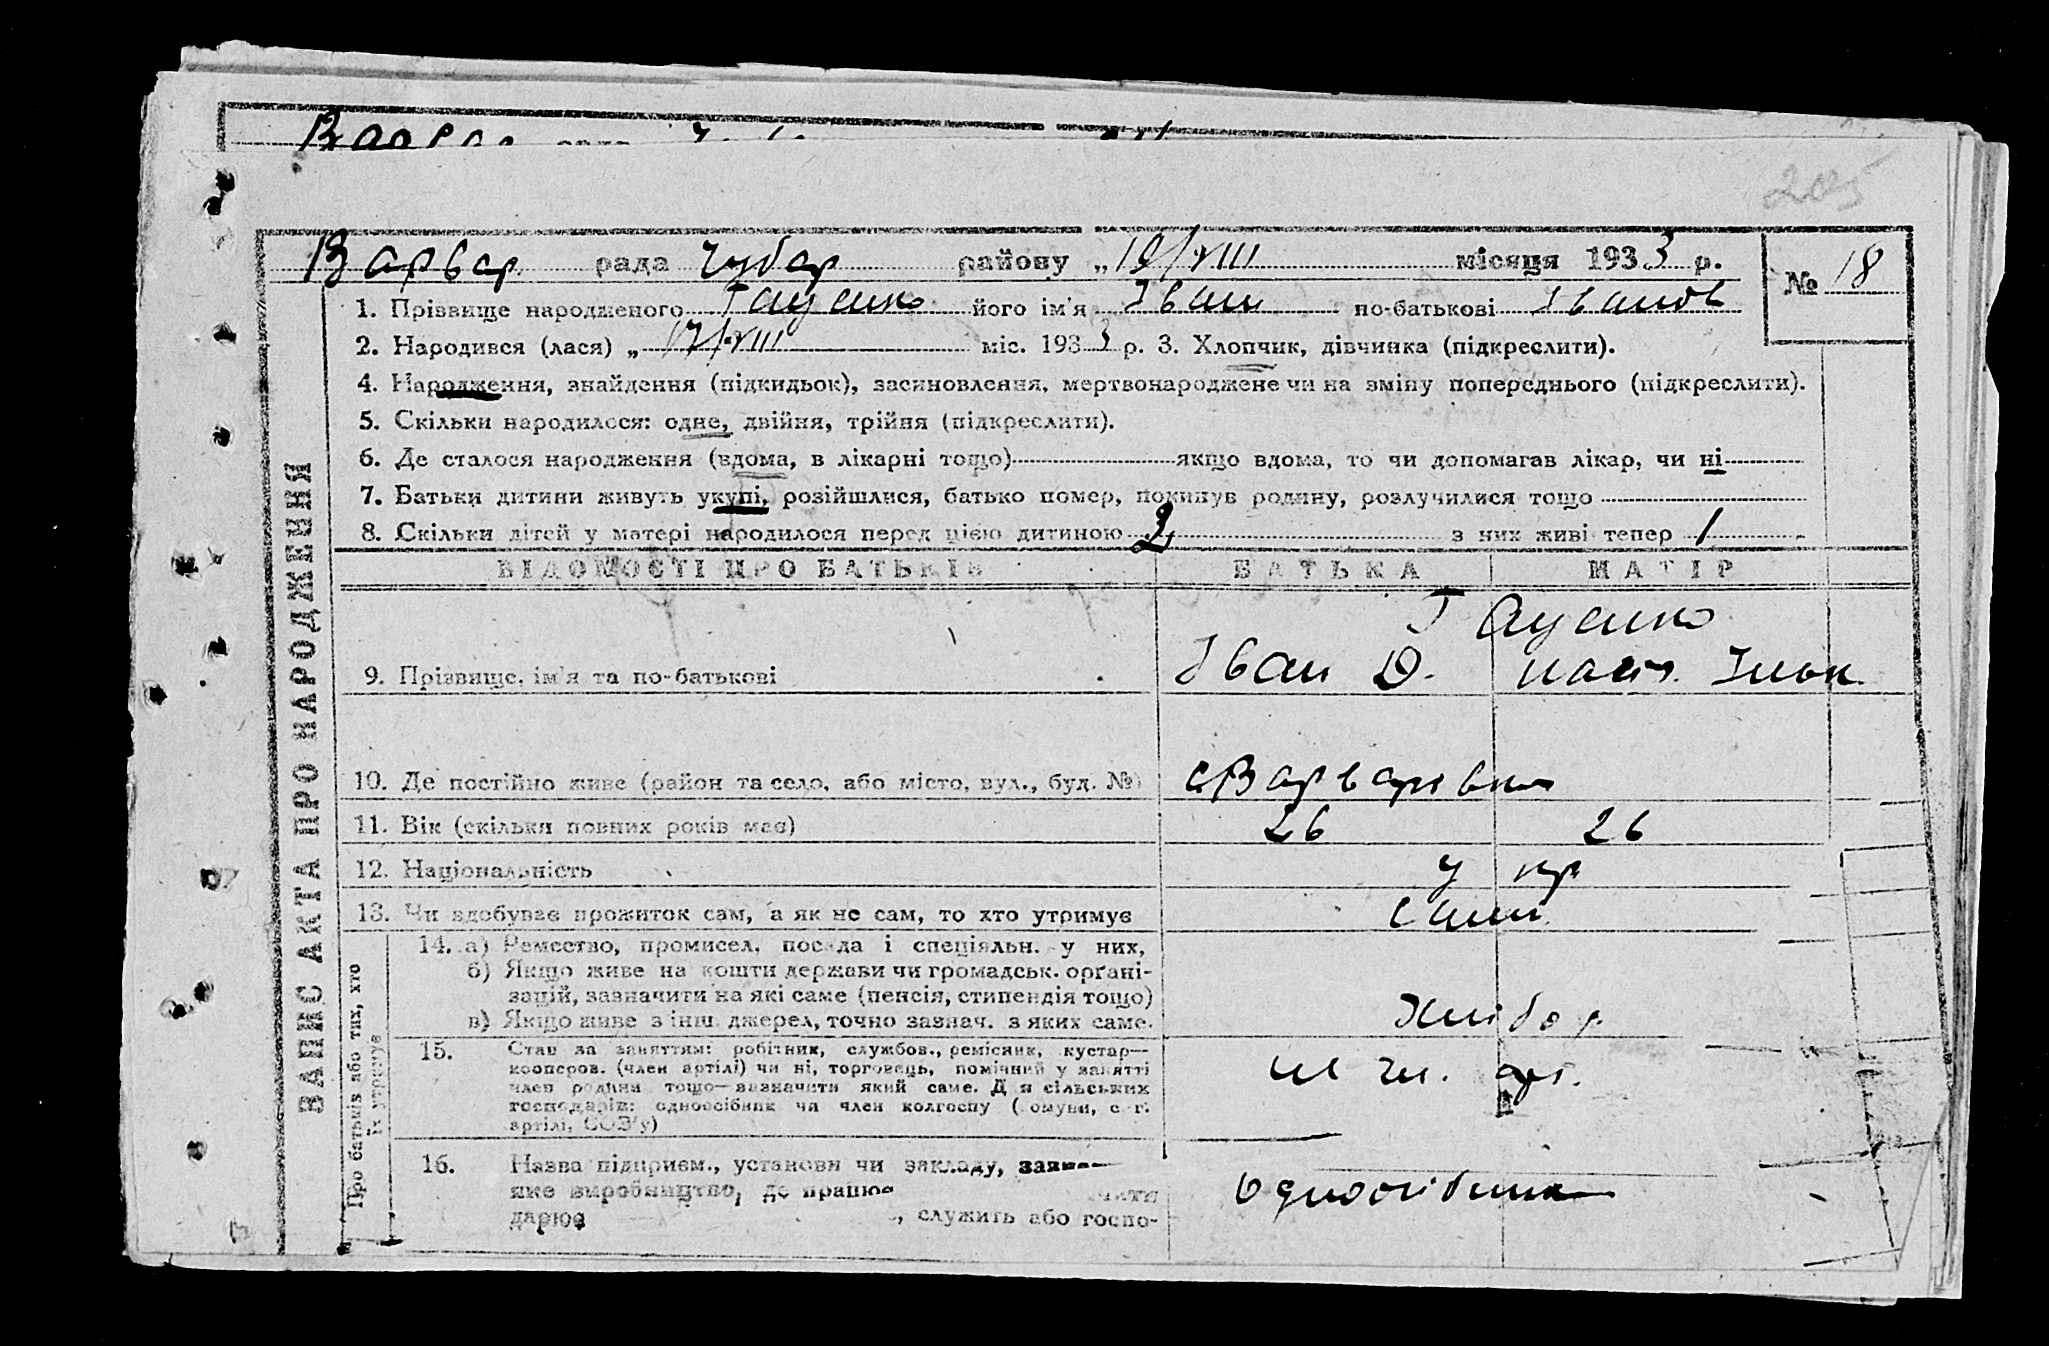 205
Варвар. рада Чубар району „19/VIII місяця 1933 р.
№ 18
1. Прізвище народженого Гаценко його ім'я Іван по-батькові Іванов
2. Народився (лася) „17/VIII міс. 1933 р. 3. Хлопчик, дівчинка (підкреслити).
4. Народження, знайдення (підкидьок), засиновлення, мертвонароджене чи на зміну попереднього (підкреслити).
5. Скільки народилося: одне, двійня, трійня (підкреслити).
6. Де сталося народження (вдома, в лікарні тощо) якщо вдома, то чи допомагав лікар, чи ні
7. Батьки дитини живуть укупі, розійшлися, батько помер, покинув родину, розлучилися тощо
8. Скільки дітей у матері народилося перед цією дитиною 2 з них живі тепер 1
ВІДОМОСТІ ПРО БАТЬКІВ БАТЬКА МАТІР
Гаценко
9. Прізвище, ім'я та по-батькові Іван Д.
10. Де постійно живе (район та село, або місто, вул., буд. №) с Варварівка
11. Вік (скільки повних років має) 26 26
12. Національність укр
13. Чи здобуває прожиток сам, а як не сам, то хто утримує сами
14. а) Ремество, промисел, посада і спеціяльн. у них,
б) Якщо живе на кошти держави чи громадськ. орґані-
зацій, зазначити на які саме (пенсія, стипендія тощо)
в) Якщо живе з інш. джерел, точно зазнач. з яких саме. Хлібор
15. Стан за заняттям: робітник, службов., ремісник, кустар—
кооперов. (член артілі) чи ні, торговець, помічний у занятті
член родини тощо—зазначити який саме. Для сільських
господарів: одноосібник чи член колгоспу (комуни, с.-г.
артілі, СОЗ'у)
16. Назва підприєм., установи чи закладу,
яке виробництво, де працює
дарює , служить або госпо- Одноосібник
ЗАПИС АКТА ПРО НАРОДЖЕННЯ
Про батьків або тих, хто
їх утримує